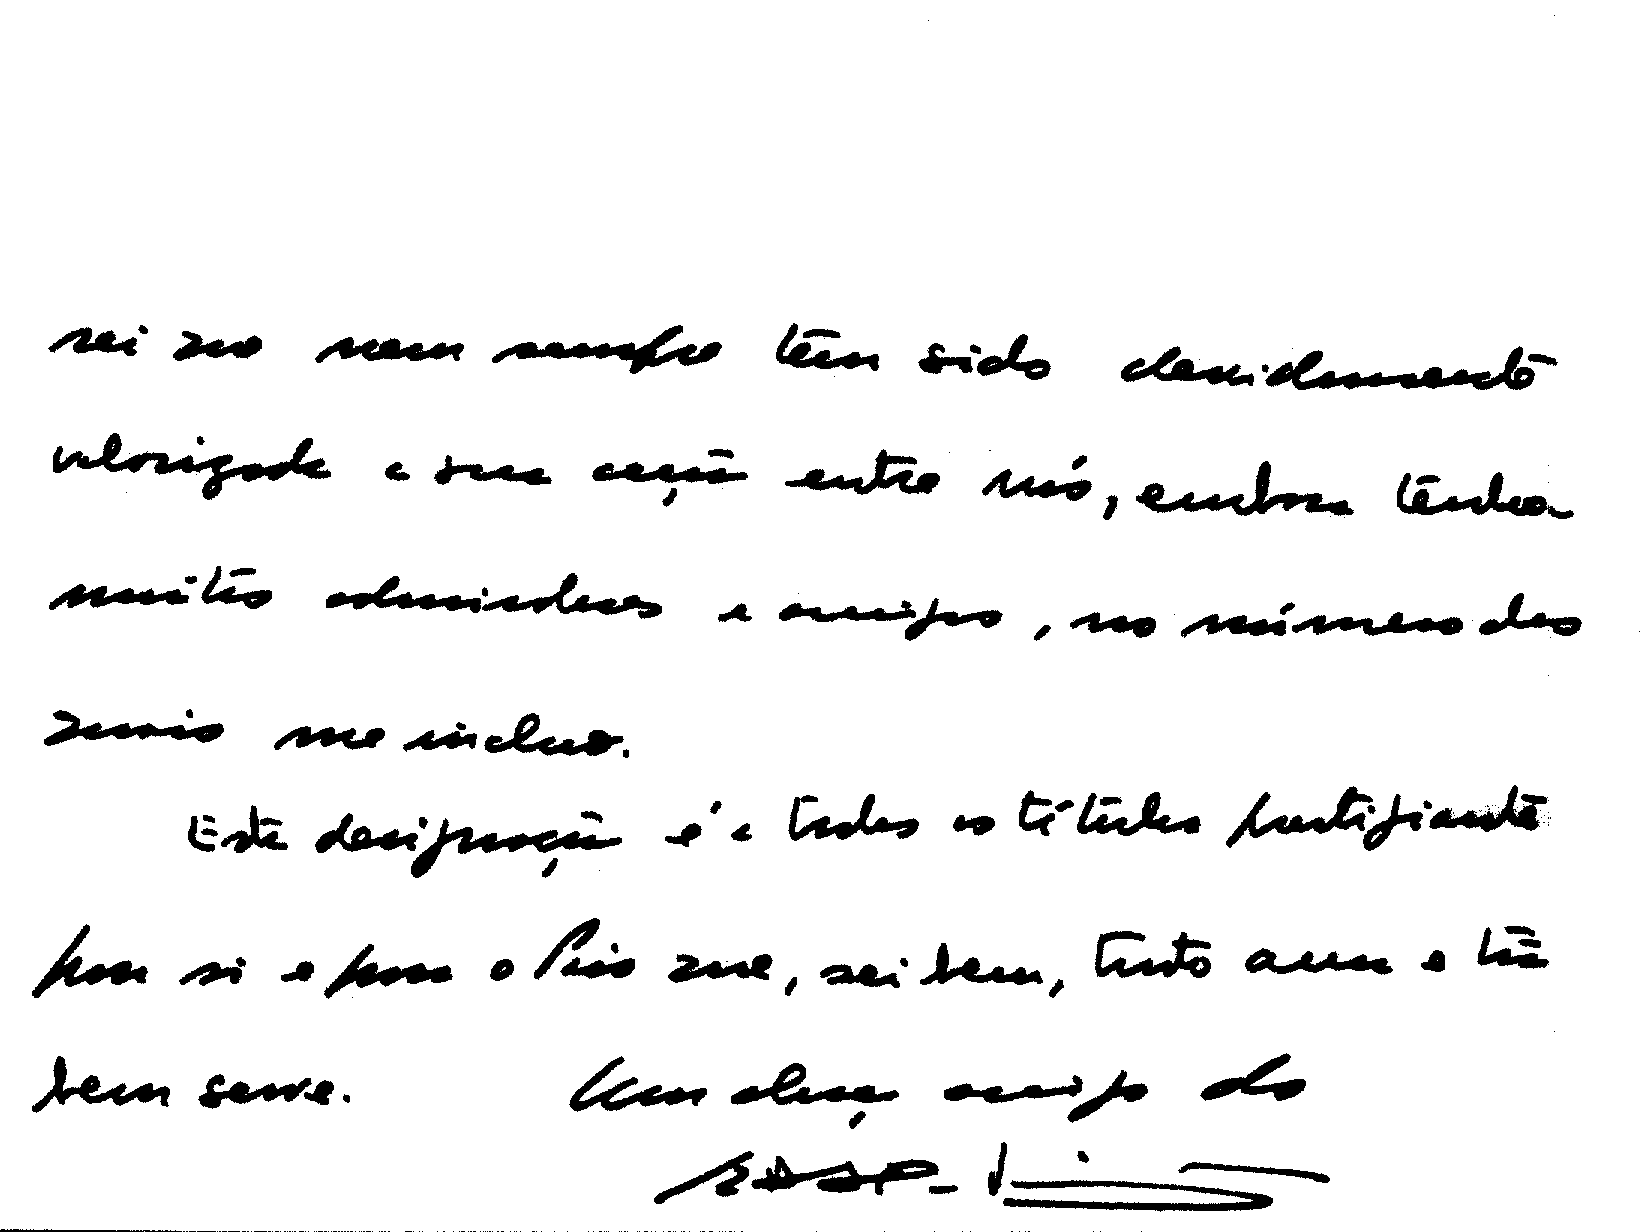 sei que nem sempre têm sido devidamente
valorizada a sua acção entre nós, embora tenha
muitos admiradores e amigos, no número dos
quais me incluo.
Esta designação é a todos os títulos gratificante
para si e para o País que, sei bem, tanto ama e tão
bem serve. Um abraço amigo do